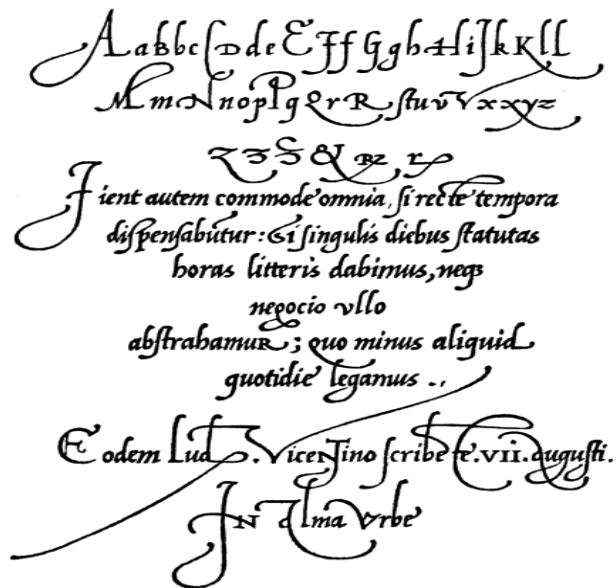 A a B b c C D d e E F f G g h H i J k K l L
M m N n o p P q Q r R ſ t u v V x x y z
Z Z Z & R r
Fient autem commode omnia, ſi recte tempora
diſpenſabuntur: Et ſi ſingulis diebus ſtatutas
horas litteris dabimus, neqꝫ
negocio vllo
abſtrahamuR; quo minus aliquid
quotidie legamus .,
Eodem Lud. Vicentino ſcribente .vii. auguſti.
IN Alma Vrbe